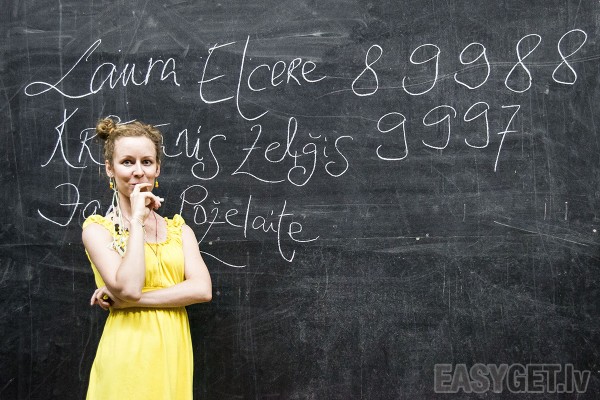 Laura Elcere 89988
Zeļģis 9997
Poželaite
EASYGET.lv